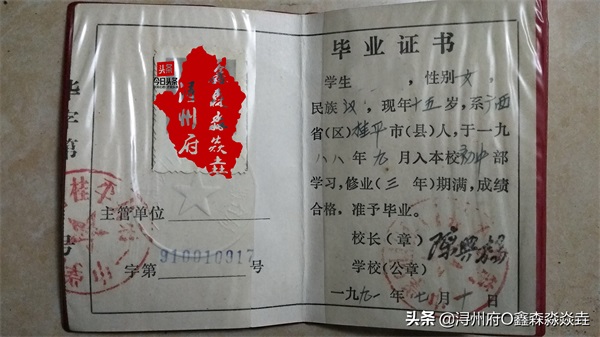 头条
今日头条
浔州府
鑫森淼焱垚
毕
字
第
号
主管单位
字第 910010917 号
毕业证书
学生 ，性别 女，
民族 汉，现年十五岁，系广西
省(区)桂平市(县)人，于一九
八八年九月入本校初中部
学习，修业(三年)期满，成绩
合格，准予毕业。
校长(章)
学校(公章)
一九九一年七月十日
头条 @浔州府O鑫森淼焱垚